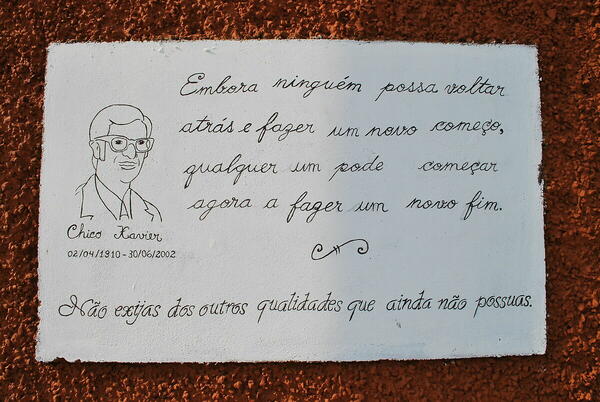 Embora ninguém possa voltar
atrás e fazer um novo começo,
qualquer um pode começar
agora a fazer um novo fim.
Chico Xavier
02/04/1910-30/06/2002
Não exijas dos outros qualidades que ainda não possuas.